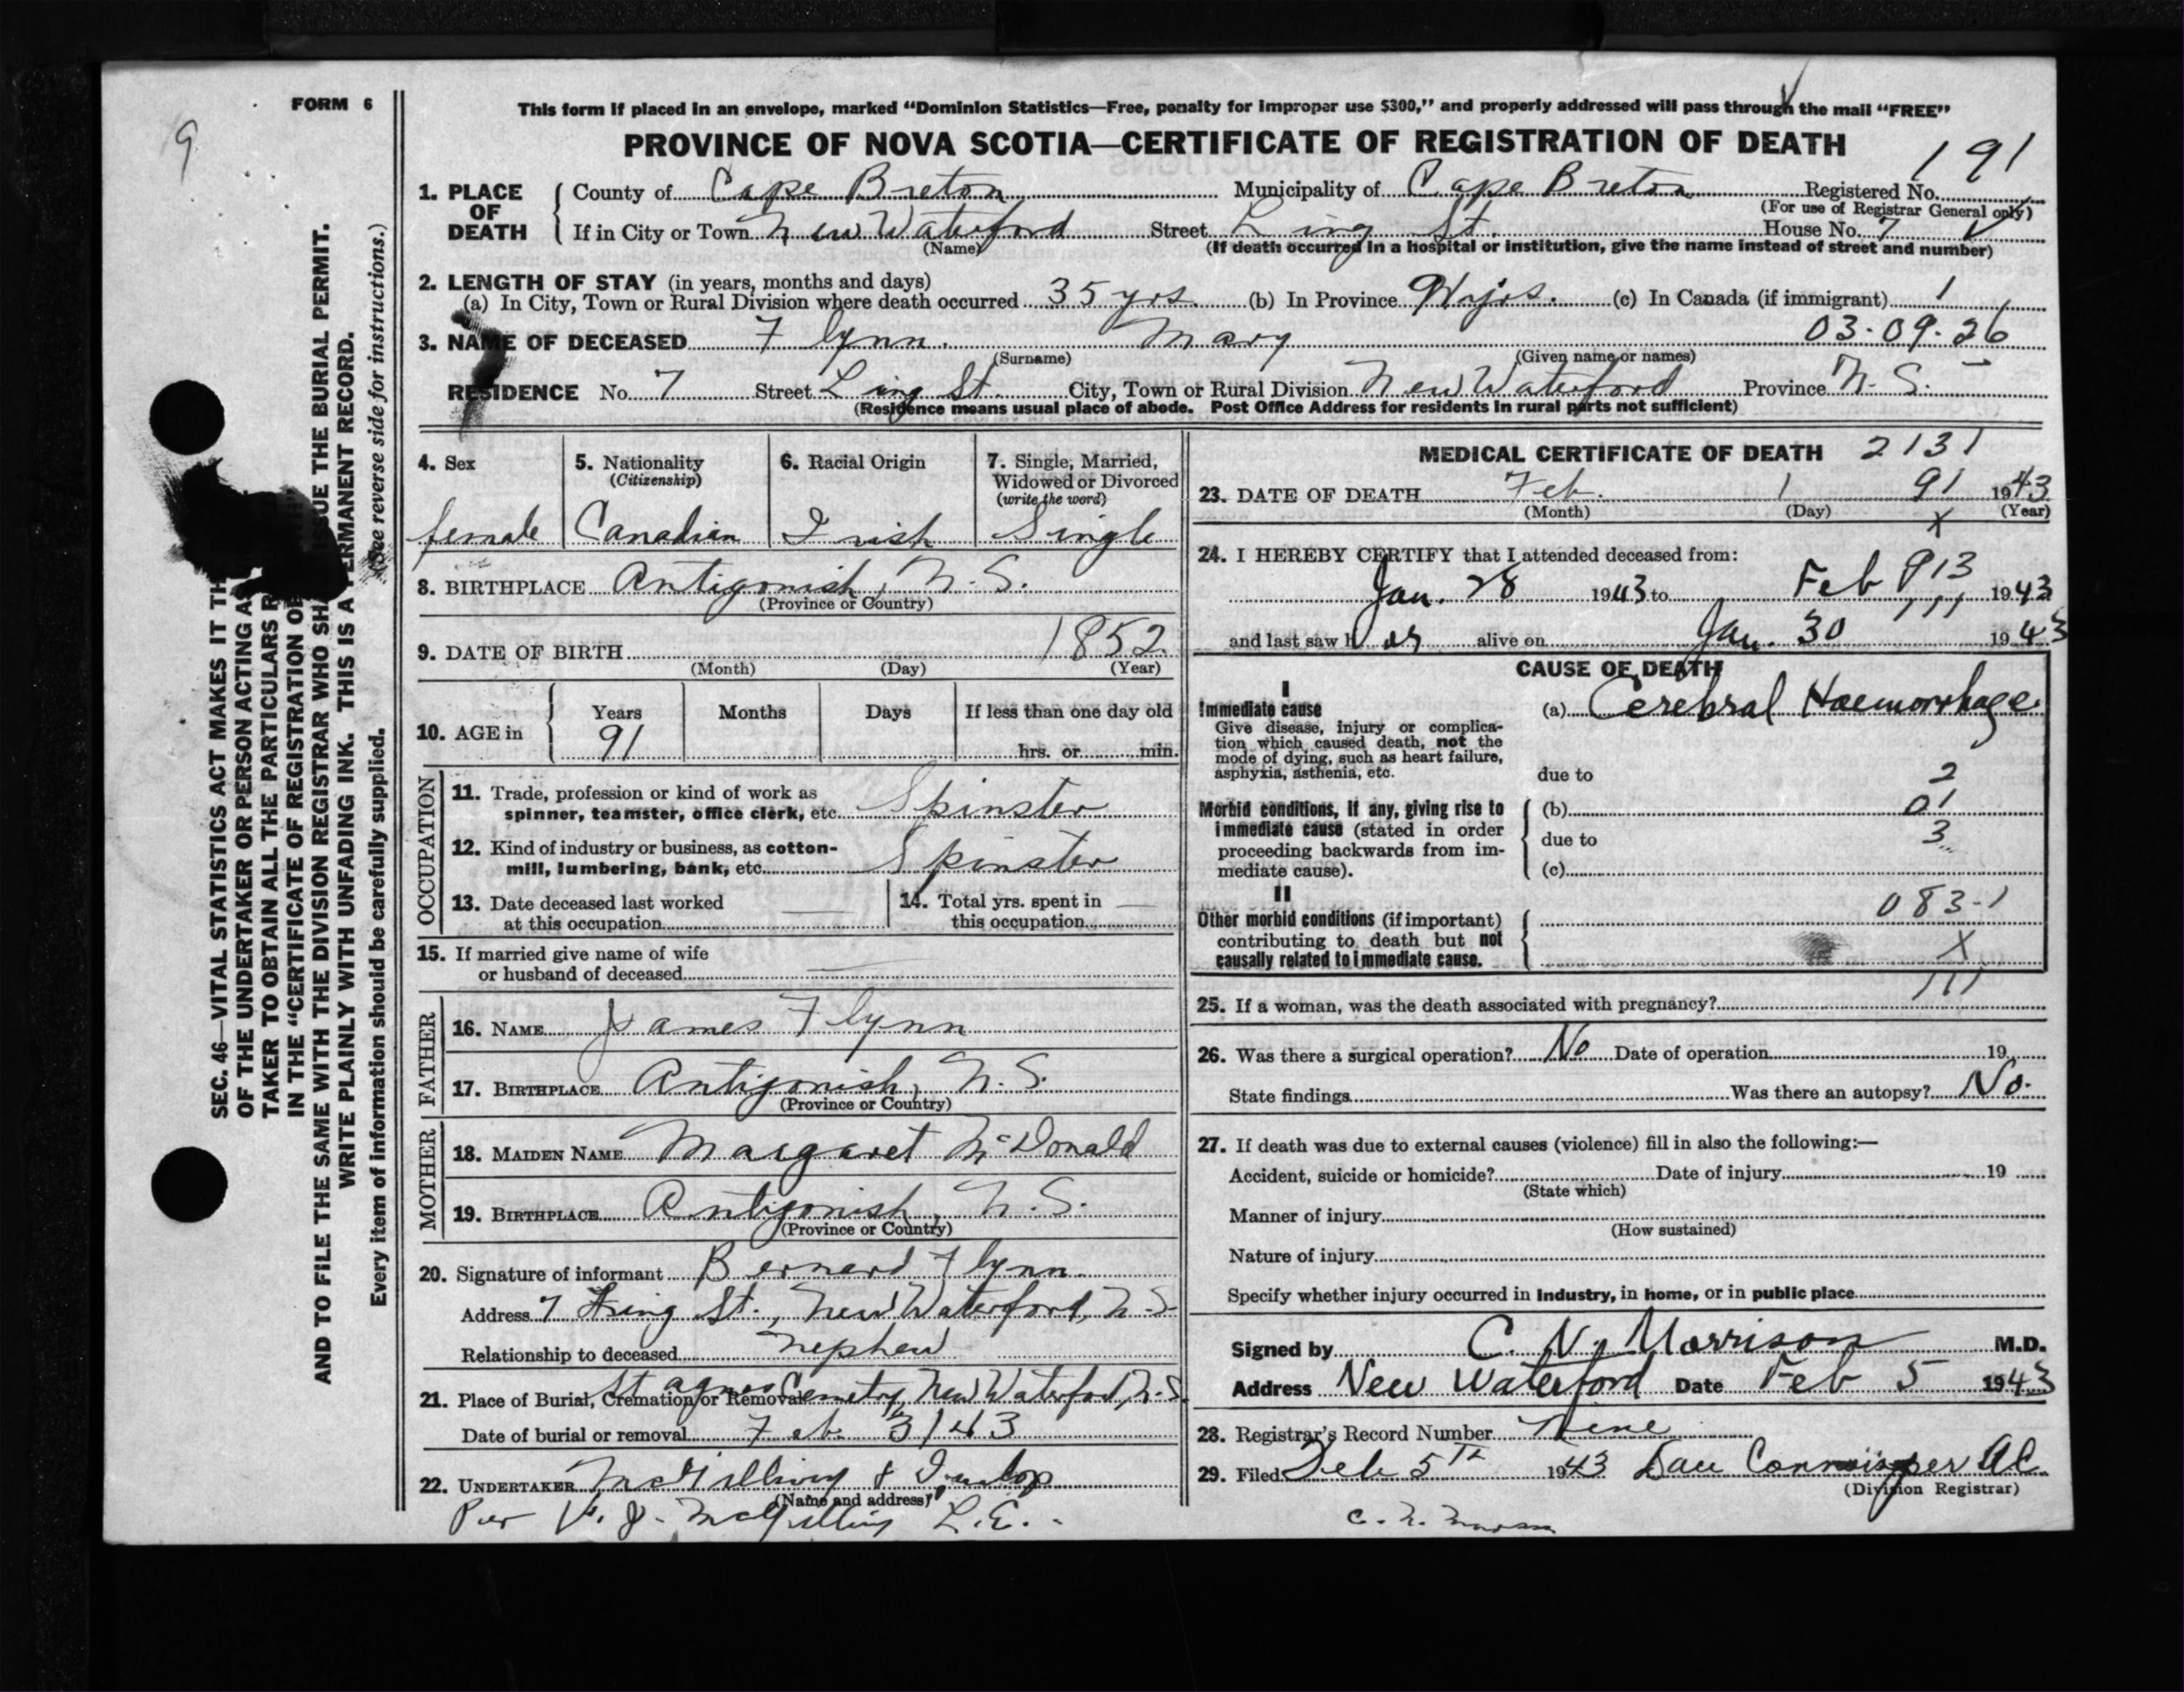 FORM 6
9
This form if placed in an envelope, marked “Dominion Statistics—Free, penalty for improper use $300,” and properly addressed will pass through the mail “FREE”
PROVINCE OF NOVA SCOTIA—CERTIFICATE OF REGISTRATION OF DEATH
191
1. PLACE OF DEATH
County of Cape Breton Municipality of Cape Breton Registered No.
(For use of Registrar General only)
If in City or Town New Waterford Street Ling St. House No. 7
(Name) (If death occurred in a hospital or institution, give the name instead of street and number)
2. LENGTH OF STAY (in years, months and days)
(a) In City, Town or Rural Division where death occurred 35 yrs. (b) In Province 91 yrs. (c) In Canada (if immigrant) 1
3. NAME OF DECEASED Flynn. Mary 03-09-26
(Surname) (Given name or names)
RESIDENCE No. 7 Street Ling St. City, Town or Rural Division New Waterford Province N.S.
(Residence means usual place of abode. Post Office Address for residents in rural parts not sufficient)
4. Sex
female
5. Nationality
(Citizenship)
Canadian
6. Racial Origin
Irish
7. Single, Married,
Widowed or Divorced
(write the word)
Single
8. BIRTHPLACE Antigonish, N.S.
(Province or Country)
9. DATE OF BIRTH 1852
(Month) (Day) (Year)
10. AGE in
Years Months Days If less than one day old
91 hrs. or min.
OCCUPATION
11. Trade, profession or kind of work as
spinner, teamster, office clerk, etc. Spinster
12. Kind of industry or business, as cotton-
mill, lumbering, bank, etc. Spinster
13. Date deceased last worked
at this occupation
14. Total yrs. spent in
this occupation
15. If married give name of wife
or husband of deceased
FATHER
16. NAME James Flynn
17. BIRTHPLACE Antigonish, N.S.
(Province or Country)
MOTHER
18. MAIDEN NAME Margaret McDonald
19. BIRTHPLACE Antigonish, N.S.
(Province or Country)
20. Signature of informant Bernard Flynn
Address 7 St., New Waterford, N.S.
Relationship to deceased Nephew
21. Place of Burial, Cremation or Removal St Agnes Cemetry, New Waterford, N.S.
Date of burial or removal Feb. 3/43
22. UNDERTAKER McGillivry & Dunlop
(Name and address)
Per V. J. McGillivry L.E.
MEDICAL CERTIFICATE OF DEATH 2131
23. DATE OF DEATH Feb. 1 91 1943
(Month) (Day) X (Year)
24. I HEREBY CERTIFY that I attended deceased from:
Jan. 28 1943 to Feb 913 1943
111
and last saw her alive on Jan. 30 1943
CAUSE OF DEATH
I
Immediate cause
Give disease, injury or complica-
tion which caused death, not the
mode of dying, such as heart failure,
asphyxia, asthenia, etc.
(a) Cerebral Haemorrhage
due to 2
Morbid conditions, if any, giving rise to
immediate cause (stated in order
proceeding backwards from im-
mediate cause).
(b) 01
due to 3
(c)
II
Other morbid conditions (if important)
contributing to death but not
causally related to immediate cause.
083-1
X
111
25. If a woman, was the death associated with pregnancy?
26. Was there a surgical operation? No Date of operation 19
State findings Was there an autopsy? No.
27. If death was due to external causes (violence) fill in also the following:—
Accident, suicide or homicide? Date of injury 19
(State which)
Manner of injury
(How sustained)
Nature of injury
Specify whether injury occurred in Industry, in home, or in public place
Signed by C. N. Morrison M.D.
Address New Waterford Date Feb 5 1943
28. Registrar's Record Number Nine
29. Filed Feb 5th 1943 Dau
(Division Registrar)
SEC. 46—VITAL STATISTICS ACT MAKES IT TH
OF THE UNDERTAKER OR PERSON ACTING AS
TAKER TO OBTAIN ALL THE PARTICULARS R
IN THE “CERTIFICATE OF REGISTRATION OF
AND TO FILE THE SAME WITH THE DIVISION REGISTRAR WHO SHA ISSUE THE BURIAL PERMIT.
WRITE PLAINLY WITH UNFADING INK. THIS IS A PERMANENT RECORD.
Every item of information should be carefully supplied. (See reverse side for instructions.)